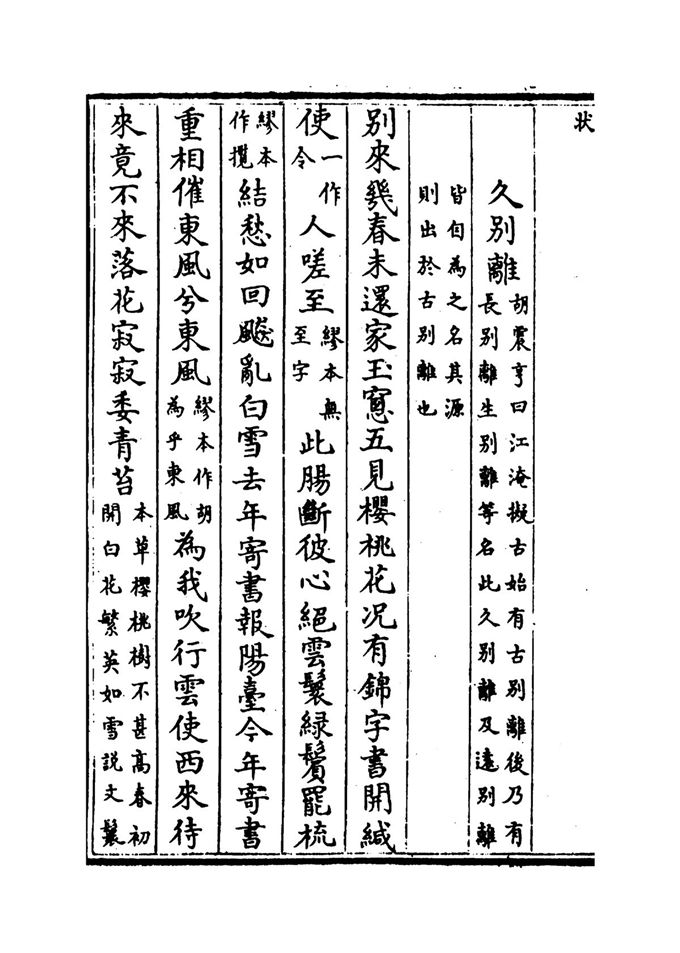 状
久别離胡震亨曰江淹擬古始有古别離後乃有長别離生别離等名此久别離及遠别離
皆自為之名其源則出於古别離也
别來幾春未還家玉窻五見櫻桃花况有錦字書開緘
使一作令人嗟至繆本無至字此腸斷彼心絕雲鬟緑鬢罷梳
繆本作攬結愁如回飈亂白雪去年寄書報陽臺今年寄書
重相催東風兮東風繆本作胡為乎東風為我吹行雲使西來待
來竟不來落花寂寂委青苔本草櫻桃樹不甚高春初開白花繁英如雪説文鬟